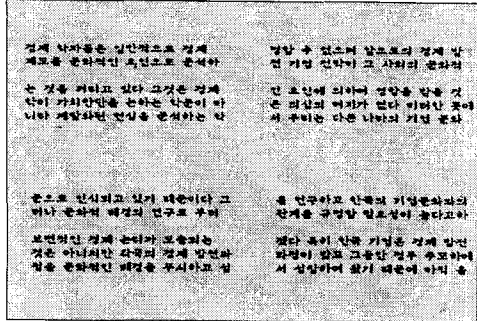 경제 학자들은 일반적으로 경제
제도를 문화적인 요인으로 분석하
는 것을 꺼리고 있다 그것은 경제
학이 가치판단을 논하는 학문이 아
니라 계량화된 현실을 분석하는 학
문으로 인식되고 있기 때문이다 그
러나 문화적 배경의 연구도 부터
보편적인 경제 논리가 도출되는
것은 아니지만 각국의 경제 발전과
정을 문화적인 배경을 무시하고 설
명할 수 없으며 앞으로의 경제 발
전 기업 전략이 그 사회의 문화적
인 요인에 의하여 영향을 받을 것
은 의심의 여지가 없다 이러한 뜻에
서 우리는 다른 나라의 기업 문화
를 연구하고 한국의 기업문화와의
관계를 규명할 필요성이 높다고하
겠다 특히 한국 기업은 경제 발전
과정이 짧고 그동안 정부 주도하에
서 성장하여 왔기 때문에 아직 을